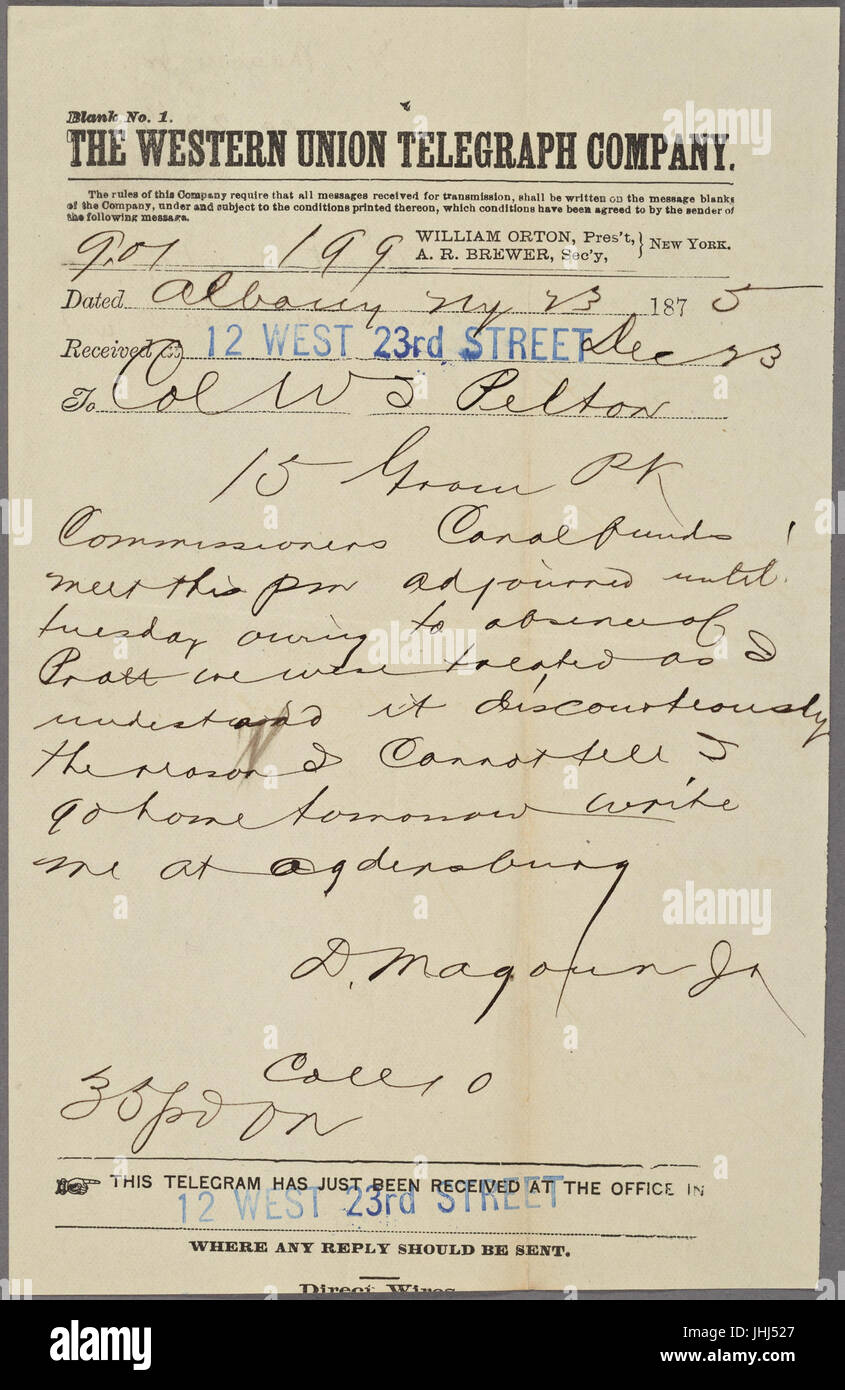 Blank No. 1.
THE WESTERN UNION TELEGRAPH COMPANY.
The rules of this Company require that all messages received for transmission, shall be written on the message blanks
of the Company, under and subject to the conditions printed thereon, which conditions have been agreed to by the sender of
the following message.
199 WILLIAM ORTON, Pres't, } NEW YORK.
A. R. BREWER, Sec'y,
Dated Albany Ny 23 1875
Received at 12 WEST 23rd STREET Dec 23
To Col W T Pelton
15 Gram PK
Commissioners Canal funds
meet this pm adjourned until
tuesday owing to absence of
Pratt we were treated as I
understand it discourteously
the reason I Cannot tell I
go home tomorrow write
me at Ogdensburg
D. Magoun Jr
35 pd
THIS TELEGRAM HAS JUST BEEN RECEIVED AT THE OFFICE IN
12 WEST 23rd STREET
WHERE ANY REPLY SHOULD BE SENT.
Direct Wires
alamy
alamy stock photo
JHJ527
www.alamy.com